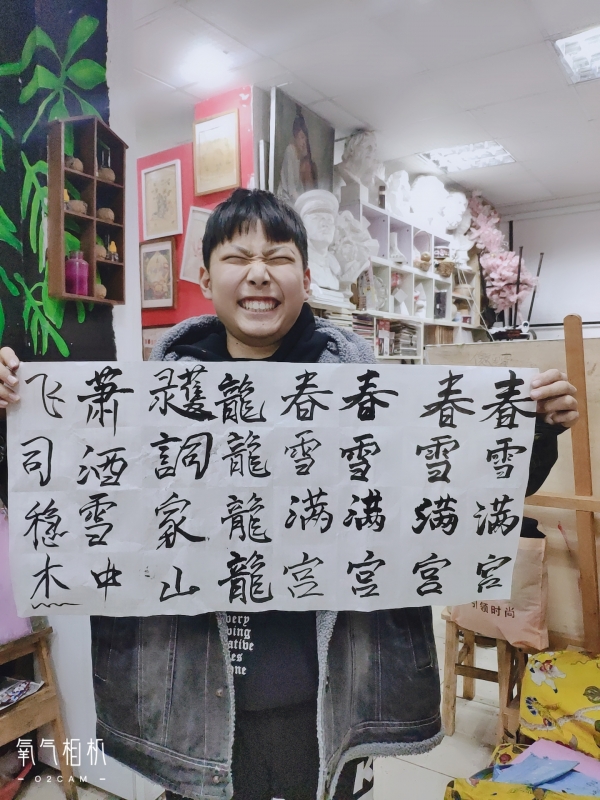 春雪满宫
春雪满宫
春雪满宫
春雪满宫
龍龍龍龍
詞家山
萧酒雪中
飞司稳木
引领时尚
氧气相机
- O2CAM -